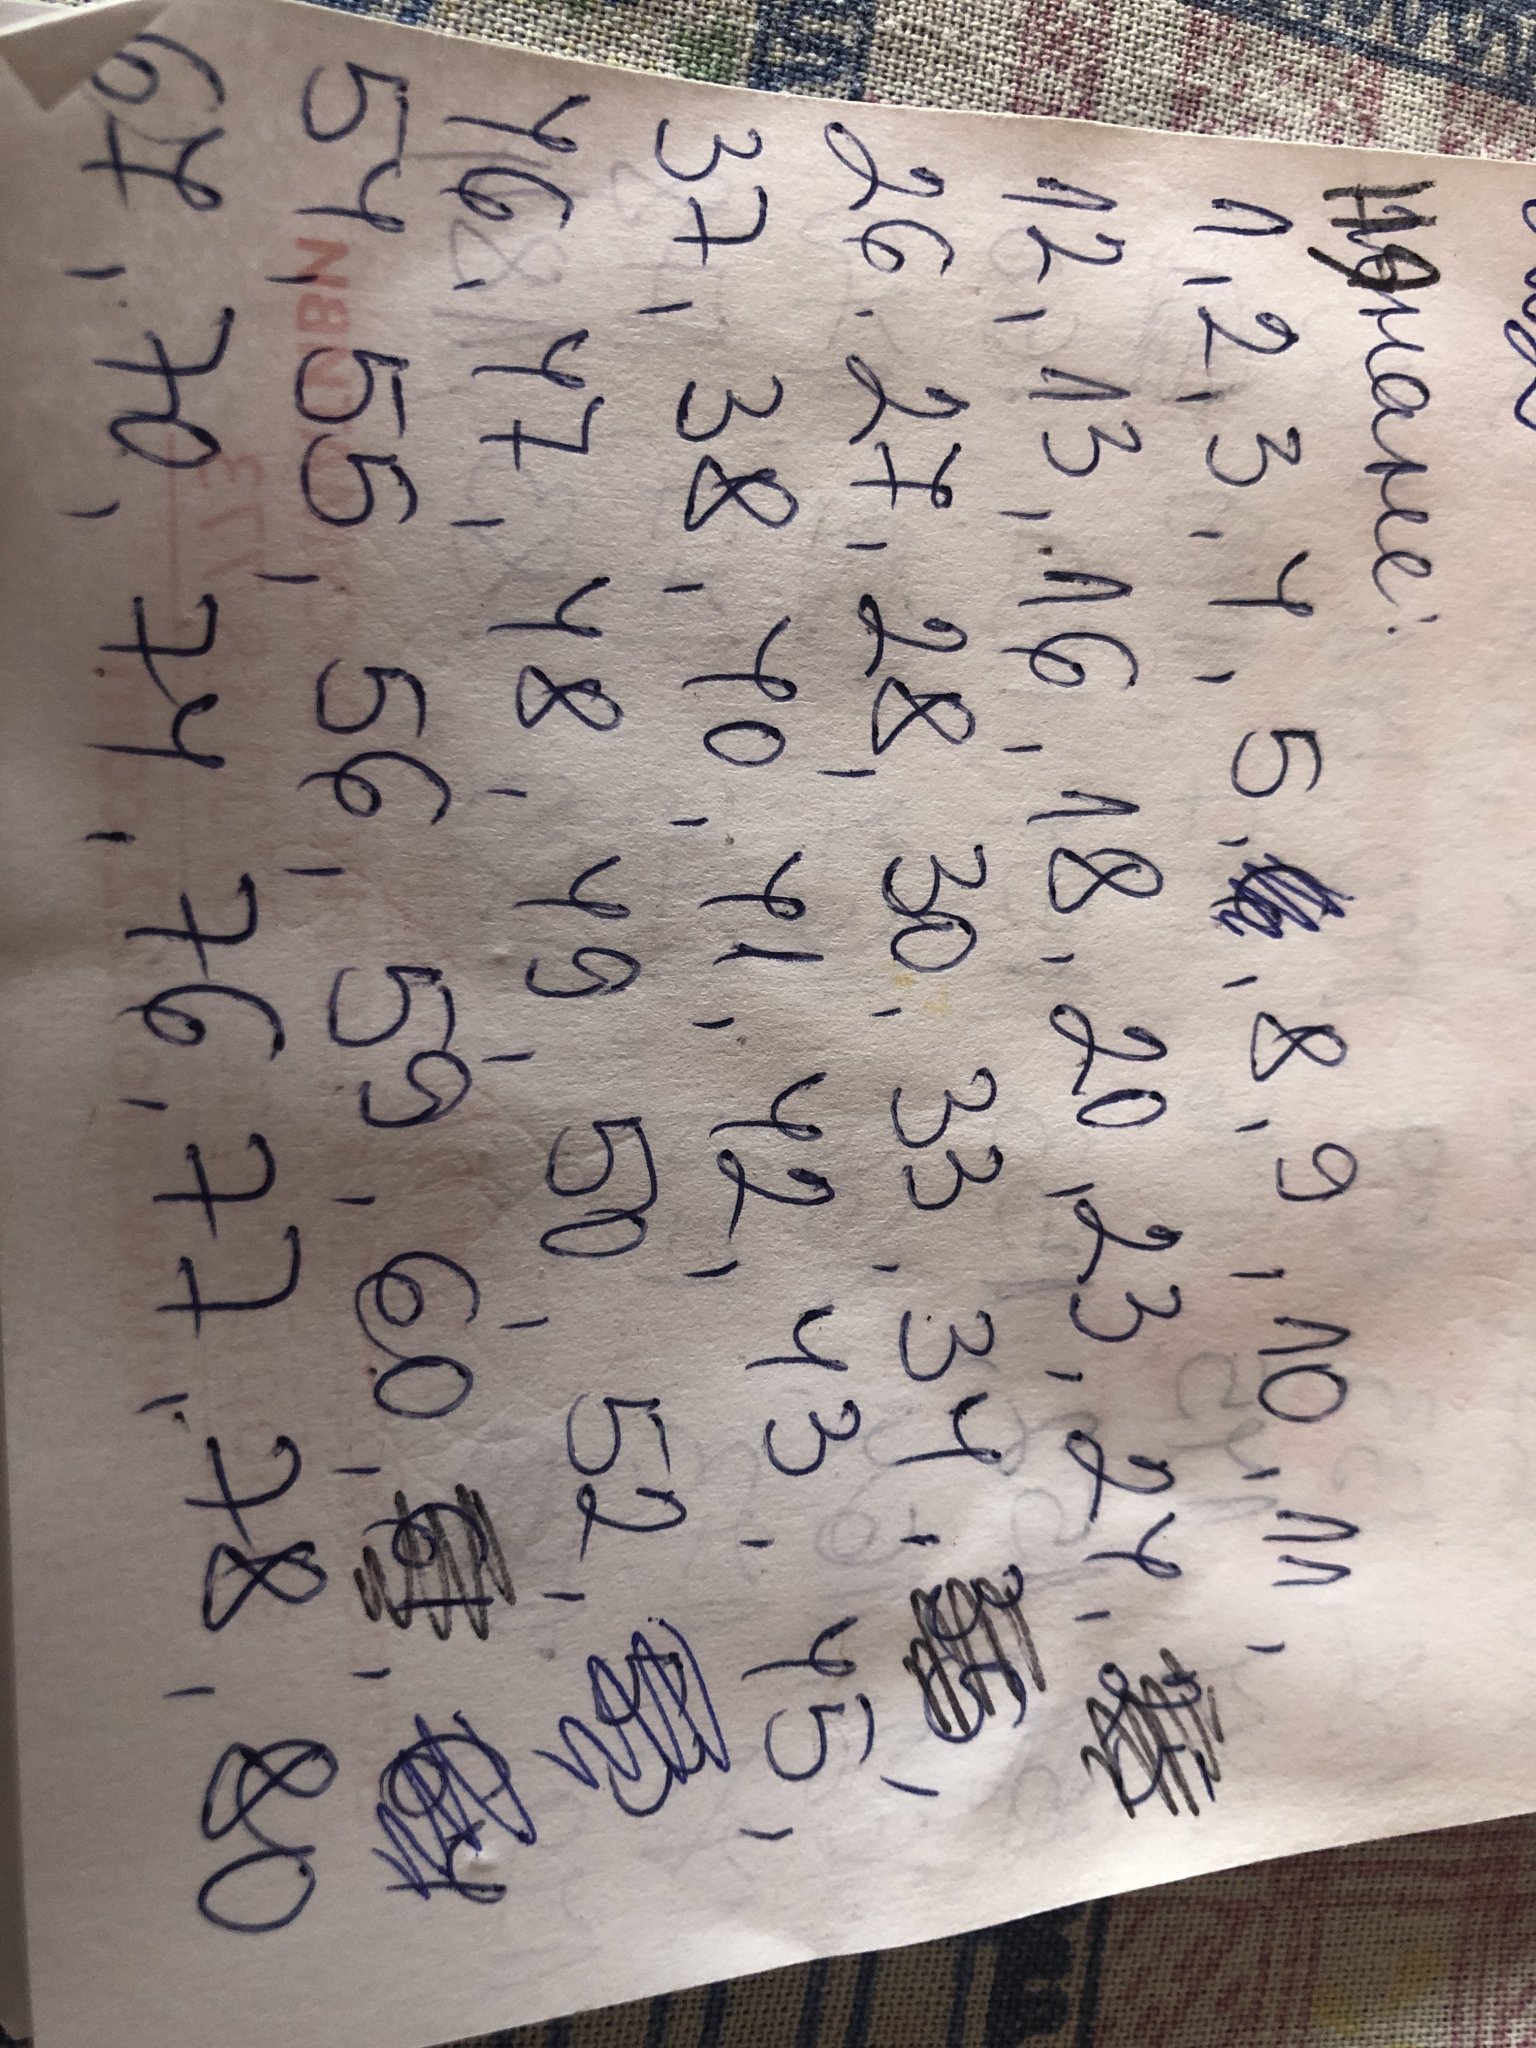 1, 2, 3, 4, 5, , 8, 9, 10, 11,
12, 13, 16, 18, 20, 23, 24,
26, 27, 28, 30, 33, 34,
37, 38, 40, 41, 42, 43, 45,
46, 47, 48, 49, 50, 52,
54, 55, 56, 59, 60,
67, 70, 74, 76, 77, 78, 80